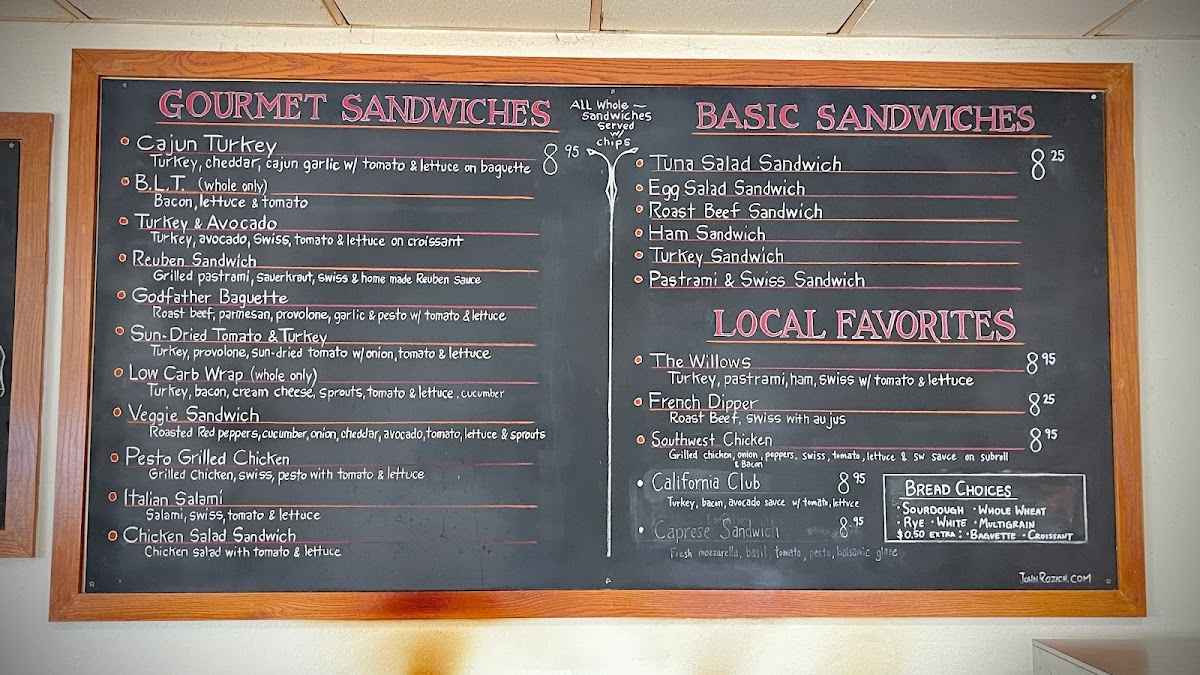 GOURMET SANDWICHES
Cajun Turkey 8 95
Turkey, cheddar, cajun garlic w/ tomato & lettuce on baguette
B.L.T. (whole only)
Bacon, lettuce & tomato
Turkey & Avocado
Turkey, avocado, Swiss, tomato & lettuce on croissant
Reuben Sandwich
Grilled pastrami, sauerkraut, swiss & home made Reuben Sauce
Godfather Baguette
Roast beef, parmesan, provolone, garlic & pesto w/ tomato & lettuce
Sun-Dried Tomato & Turkey
Turkey, provolone, sun-dried tomato w/ onion, tomato & lettuce
Low Carb Wrap (whole only)
Turkey, bacon, cream cheese, sprouts, tomato & lettuce, cucumber
Veggie Sandwich
Roasted Red peppers, cucumber, onion, cheddar, avocado, tomato, lettuce & sprouts
Pesto Grilled Chicken
Grilled Chicken, swiss, pesto with tomato & lettuce
Italian Salami
Salami, swiss, tomato & lettuce
Chicken Salad Sandwich
Chicken salad with tomato & lettuce
ALL Whole ~
Sandwiches
Served
w/
chips
BASIC SANDWICHES
Tuna Salad Sandwich 8 25
Egg Salad Sandwich
Roast Beef Sandwich
Ham Sandwich
Turkey Sandwich
Pastrami & Swiss Sandwich
LOCAL FAVORITES
The Willows 8 95
Turkey, pastrami, ham, swiss w/ tomato & lettuce
French Dipper 8 25
Roast Beef, swiss with aujus
Southwest Chicken 8 95
Grilled chicken, onion, peppers, swiss, tomato, lettuce & sw sauce on subroll
& Bacon
California Club 8 95
Turkey, bacon, avocado sauce w/ tomato, lettuce
Caprese Sandwich 8 95
Fresh mozzarella, basil, tomato, pesto, balsamic glase
BREAD CHOICES
· SOURDOUGH · WHOLE WHEAT
· RYE · WHITE · MULTIGRAIN
$0.50 EXTRA: · BAGUETTE · CROISSANT
JOHNROZICH.COM